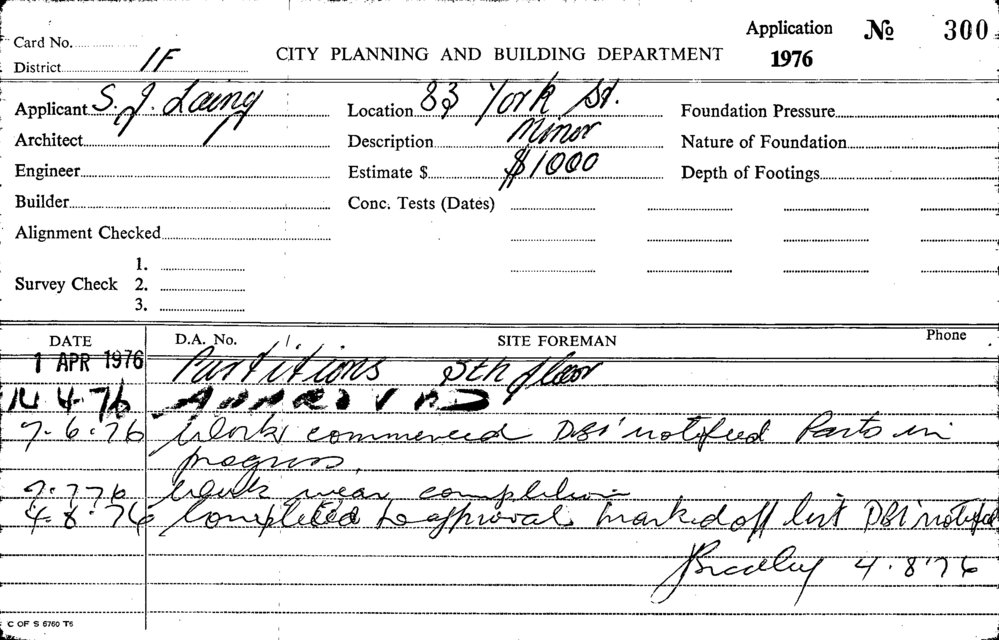 Card No.
District 1F
CITY PLANNING AND BUILDING DEPARTMENT
Application № 300
1976
Applicant S. J. Laing
Location 83 York St.
Foundation Pressure
Architect
Description Minor
Nature of Foundation
Engineer
Estimate $ $1000
Depth of Footings
Builder
Conc. Tests (Dates)
Alignment Checked
Survey Check 1.
2.
3.
DATE D.A. No. SITE FOREMAN Phone
1 APR 1976 Partitions 5th floor
14 4.76 APPROVED
7.6.76 Work commenced DBI notified Parts in
progress.
9.7.76 Work near completion
4.8.76 Completed to approval marked off list DBI notified
4.8.76
C OF S 6760 T6